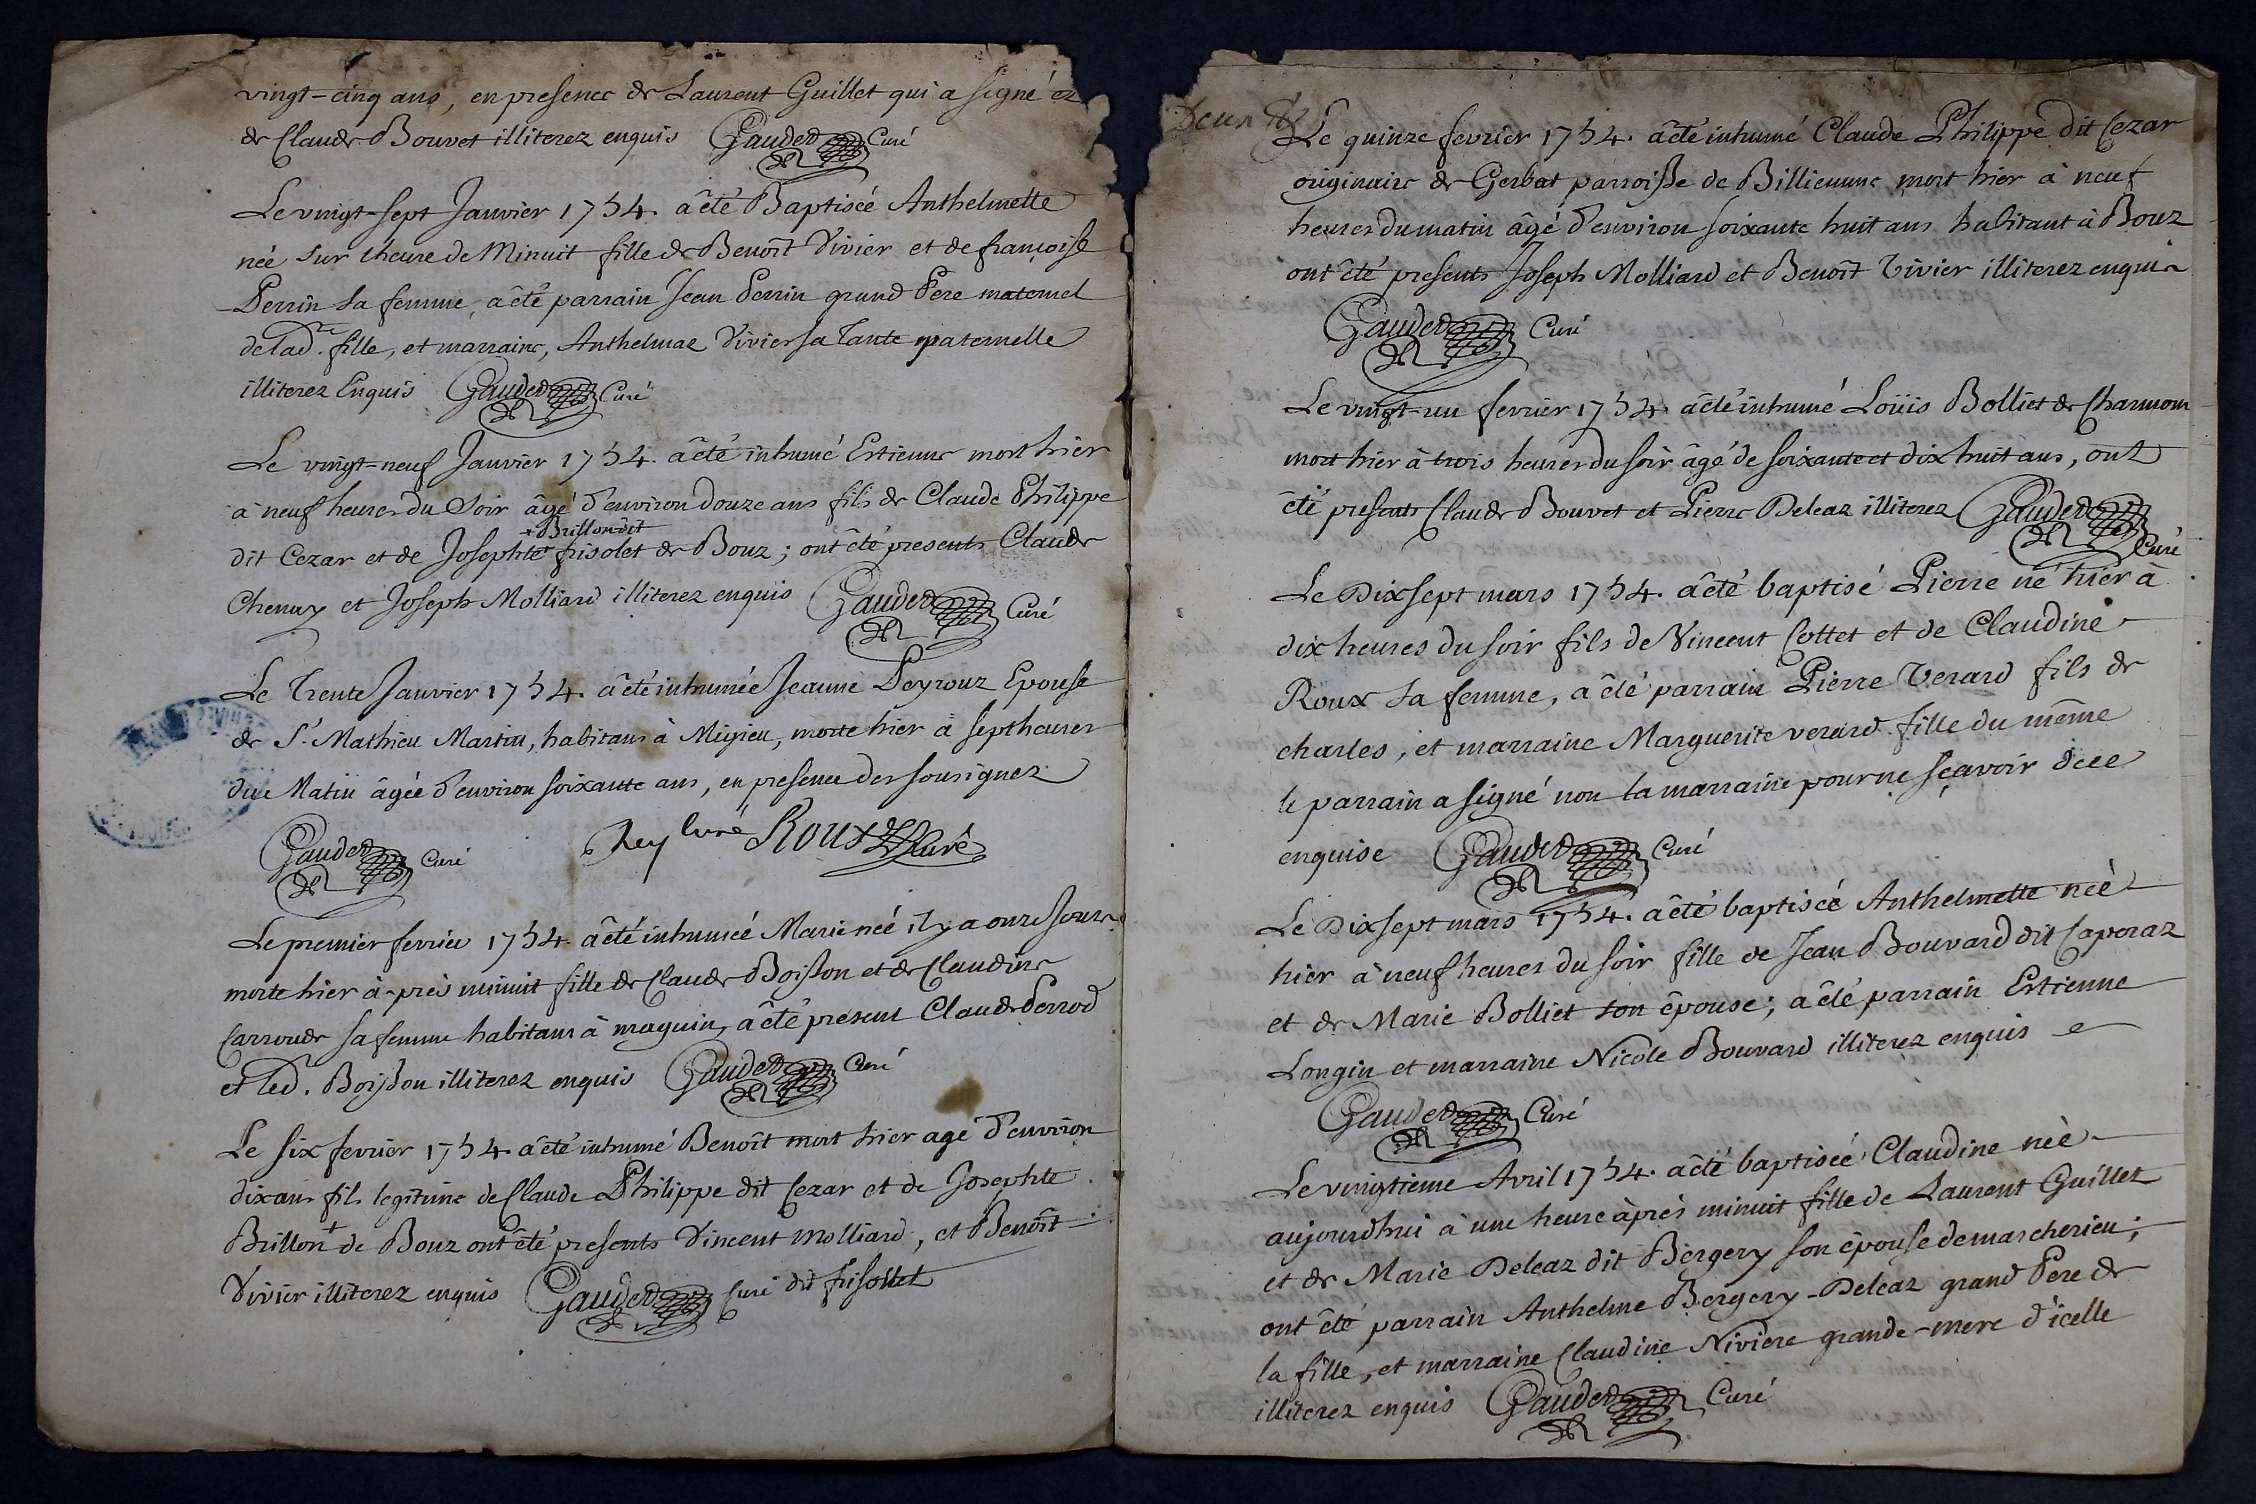 vingt-cinq ans, en presence de Laurent Guillet qui a signé et
de Claude Bouvet illiterez enquis Gaudet Curé
Le vingt-sept Janvier 1754. a êté Baptisée Anthelmette
née sur l'heure de Minuit fille de Benoît Vivier et de françoise
Perrin sa femme, a êté parrain Jean Perrin grand Pere maternel
de lad. fille, et marraine, Anthelmaz Vivier sa Tante paternelle
illiterez Enquis Gaudet Curé
Le vingt-neuf Janvier 1754. a êté inhumé Estienne mort hier
à neuf heures du Soir âgé d'environ douze ans fils de Claude Philippe
+ Brillon dit
dit Cezar et de Josephte + frisolet de Bouz ; ont êté presents Claude
Chenuy et Joseph Molliard illiterez enquis Gaudet Curé
Le Trente Janvier 1754. a êté inhumée Jeanne Peyrouz Epouse
de Sr. Mathieu Martin, habitans à Migieu, morte hier à sept heures
du Matin âgée d'environ soixante ans, en presence des sousignez
Gaudet Curé Rey Curé Roux Curé
Le premier fevrier 1754. a êté inhumée Marie née il y a onze jours
morte hier à-près minuit fille de Claude Boisson et de Claudine
Carronde sa femme habitans à maguin, a êté present Claude Perrod
et led. Boisson illiterez enquis Gaudet Curé
Le six fevrier 1754. a êté inhumé Benoît mort hier agé d'environ
dix ans fils legitime de Claude Philippe dit Cezar et de Josephte
Brillon + de Bouz ont êté presents Vincent Molliard, et Benoît
Vivier illiterez enquis Gaudet Curé dit frisollet
Le quinze fevrier 1754. a êté inhumé Claude Philippe dit Cezar
originaire de Gerbat parroisse de Billieume mort hier à neuf
heures du matin âgé d'environ soixante huit ans habitant à Bouz
ont êté presents Joseph Molliard et Benoît Vivier illiterez enquis
Gaudet Curé
Le vingt-un fevrier 1754. a êté inhumé Loüis Bolliet de
mort hier à trois heures du soir âgé de soixante et dix huit ans, ont
êté presents Claude Bouvet et Pierre Deleaz illiterez Gaudet
Curé
Le Dix sept mars 1754. a êté baptisé Pierre né hier à
dix heures du soir fils de Vincent Cottet et de Claudine
Roux sa femme, a êté parrain Pierre Verard fils de
charles, et marraine Marguerite verard fille du même
le parrain a signé non la marraine pour ne sçavoir de ce
enquise Gaudet Curé
Le Dix sept mars 1754. a êté baptisée Anthelmette née
hier à neuf heures du soir fille de Jean Bouvard dit Caporaz
et de Marie Bolliet son êpouse ; a êté parrain Estienne
Longin et marraine Nicole Bouvard illiterez enquis
Gaudet Curé
Le vingtieme Avril 1754. a êté baptisée Claudine née
aujourdhui à une heure àprès minuit fille de Laurent Guillet
et de Marie Deleaz dit Bergery son êpouse de marcherieu ;
ont êté parrain Anthelme Bergery-Deleaz grand Pere de
la fille, et marraine Claudine Niviere grande-mere d'icelle
illiterez enquis Gaudet Curé